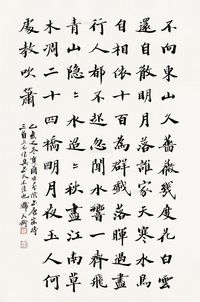 不向東山久薔薇幾度花白雲
還自散明月落誰家天寒水鳥
自相依十百為群戲落暉過盡
行人都不起忽聞水響一齊飛
青山隱〻水迢〻秋盡江南草
木凋二十四橋明月夜玉人何
處教吹簫